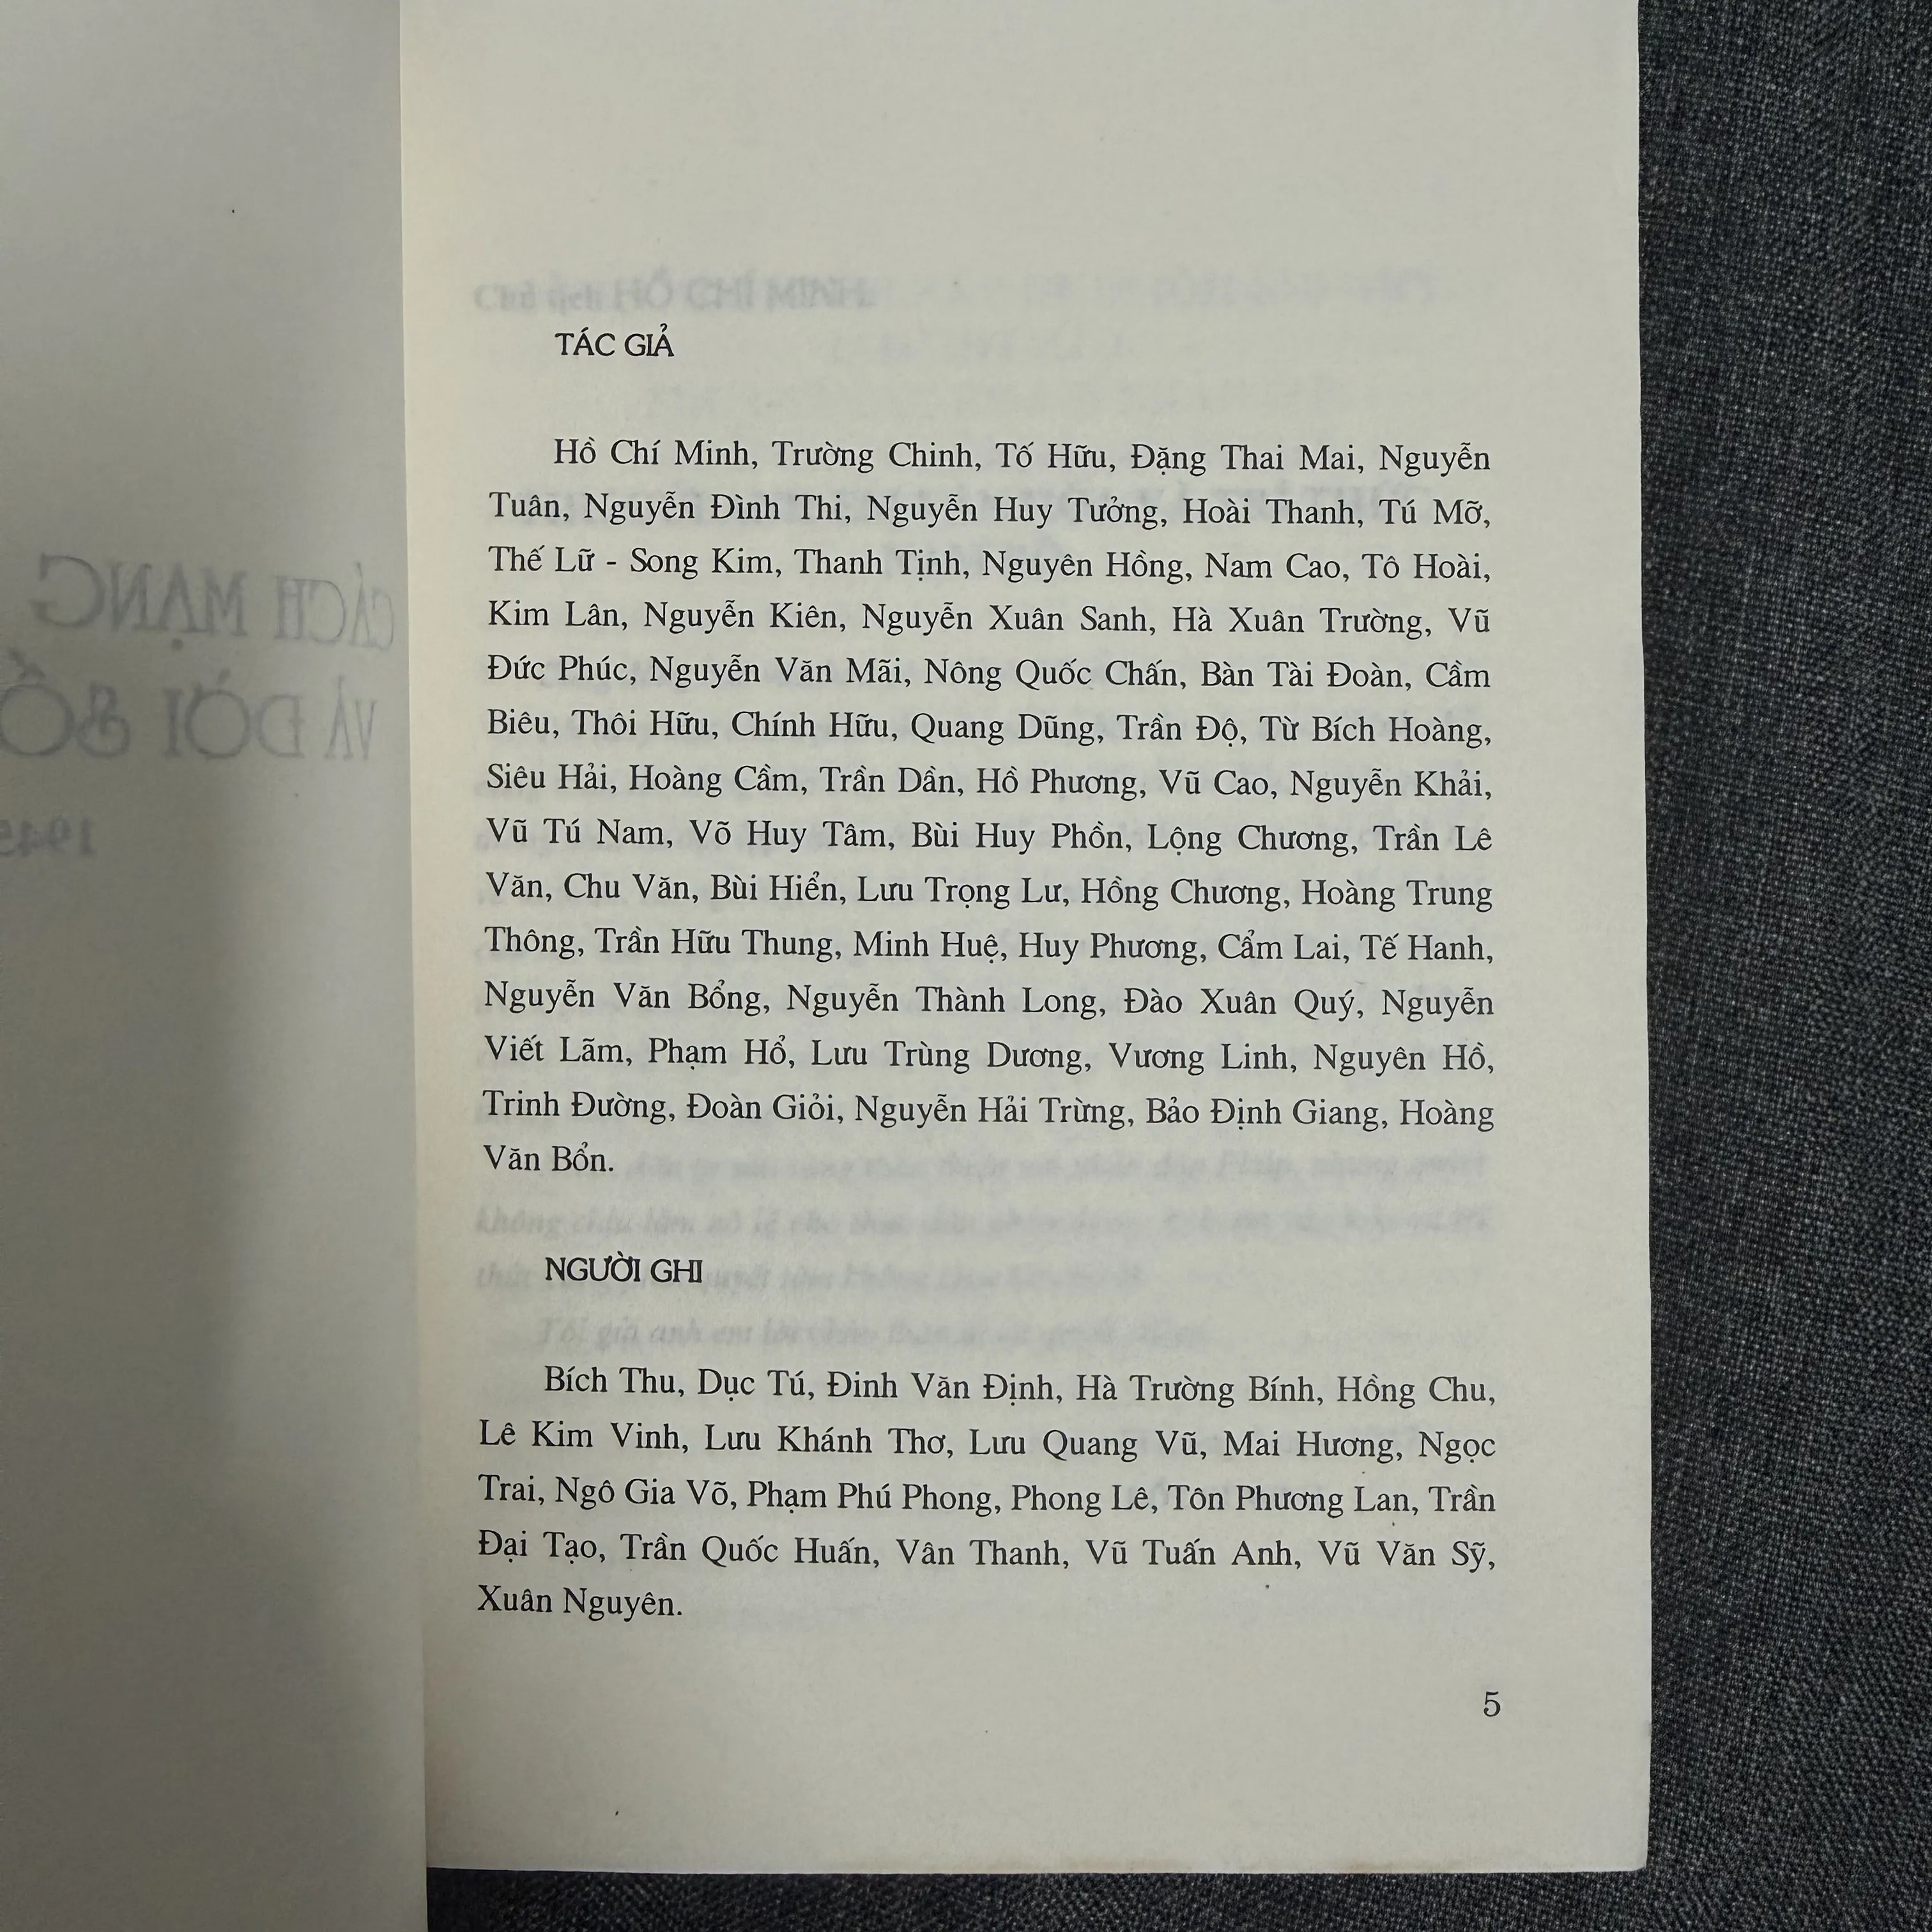 TÁC GIẢ
Hồ Chí Minh, Trường Chinh, Tố Hữu, Đặng Thai Mai, Nguyễn
Tuân, Nguyễn Đình Thi, Nguyễn Huy Tưởng, Hoài Thanh, Tú Mỡ,
Thế Lữ - Song Kim, Thanh Tịnh, Nguyên Hồng, Nam Cao, Tô Hoài,
Kim Lân, Nguyễn Kiên, Nguyễn Xuân Sanh, Hà Xuân Trường, Vũ
Đức Phúc, Nguyễn Văn Mãi, Nông Quốc Chấn, Bàn Tài Đoàn, Cầm
Biêu, Thôi Hữu, Chính Hữu, Quang Dũng, Trần Độ, Từ Bích Hoàng,
Siêu Hải, Hoàng Cầm, Trần Dần, Hồ Phương, Vũ Cao, Nguyễn Khải,
Vũ Tú Nam, Võ Huy Tâm, Bùi Huy Phồn, Lộng Chương, Trần Lê
Văn, Chu Văn, Bùi Hiển, Lưu Trọng Lư, Hồng Chương, Hoàng Trung
Thông, Trần Hữu Thung, Minh Huệ, Huy Phương, Cẩm Lai, Tế Hanh,
Nguyễn Văn Bổng, Nguyễn Thành Long, Đào Xuân Quý, Nguyễn
Viết Lãm, Phạm Hổ, Lưu Trùng Dương, Vương Linh, Nguyên Hồ,
Trinh Đường, Đoàn Giỏi, Nguyễn Hải Trừng, Bảo Định Giang, Hoàng
Văn Bổn.
NGƯỜI GHI
Bích Thu, Dục Tú, Đinh Văn Định, Hà Trường Bính, Hồng Chu,
Lê Kim Vinh, Lưu Khánh Thơ, Lưu Quang Vũ, Mai Hương, Ngọc
Trai, Ngô Gia Võ, Phạm Phú Phong, Phong Lê, Tôn Phương Lan, Trần
Đại Tạo, Trần Quốc Huấn, Vân Thanh, Vũ Tuấn Anh, Vũ Văn Sỹ,
Xuân Nguyên.
5
CÁCH MẠNG
VÀ ĐỜI SỐ
1945